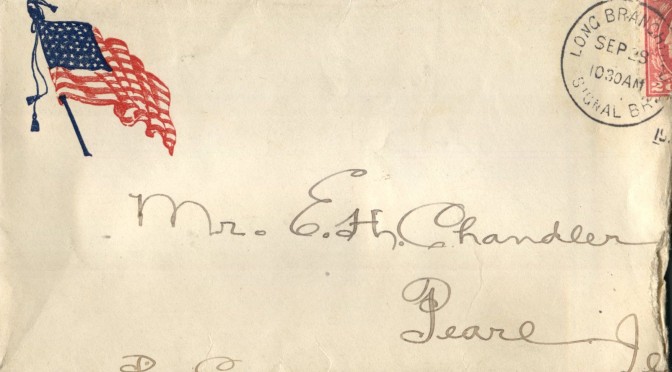 LONG BRANCH
SEP 29
1030AM
SIGNAL BR
Mr. E. H. Chandler
Pearl